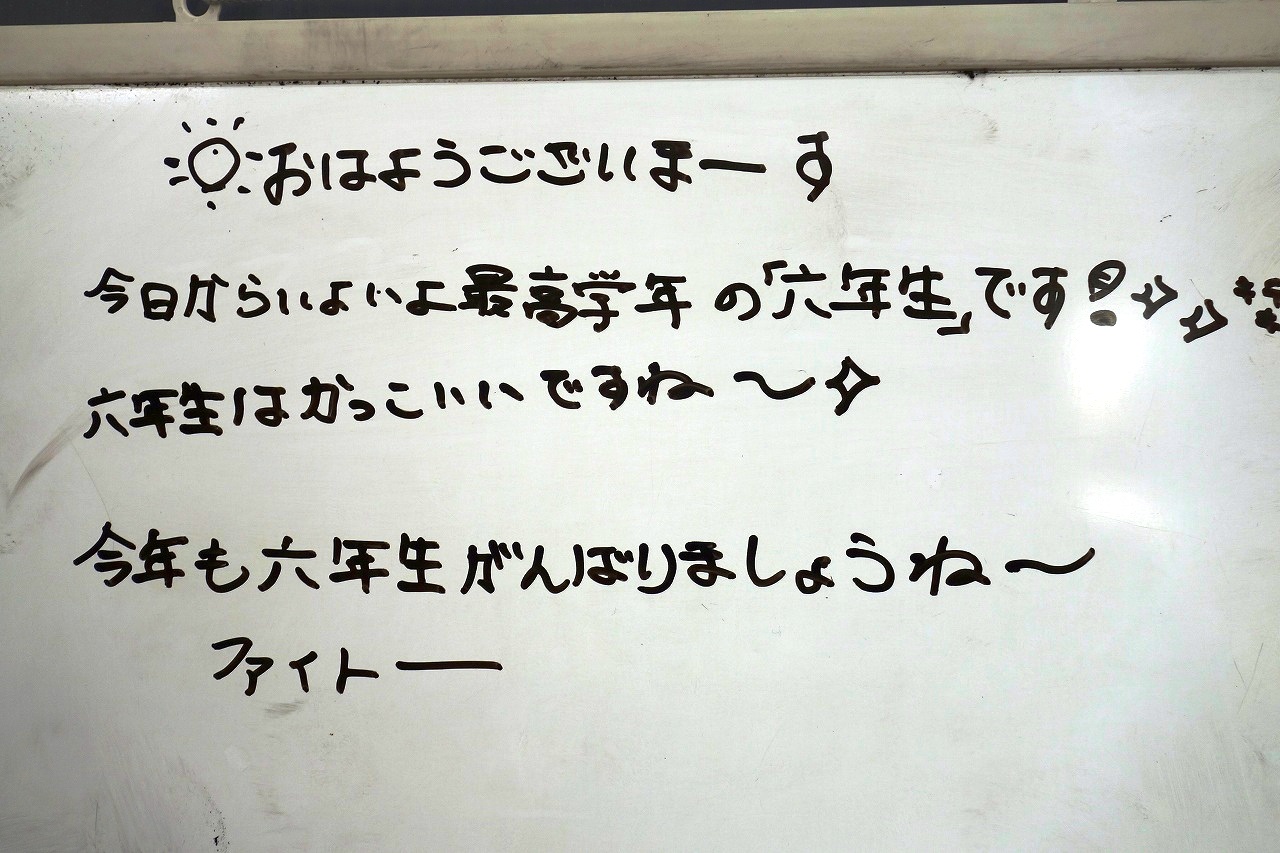 おはようございまーす
今日からいよいよ最高学年の「六年生」です!
六年生はかっこいいですね〜
今年も六年生がんばりましょうね〜
ファイトー